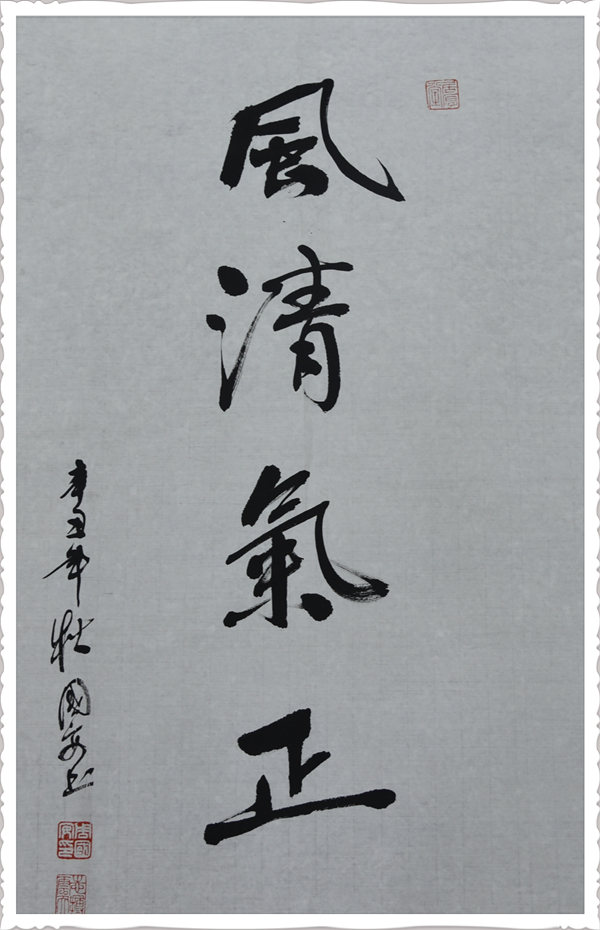 風清氣正
辛丑年秋國安书